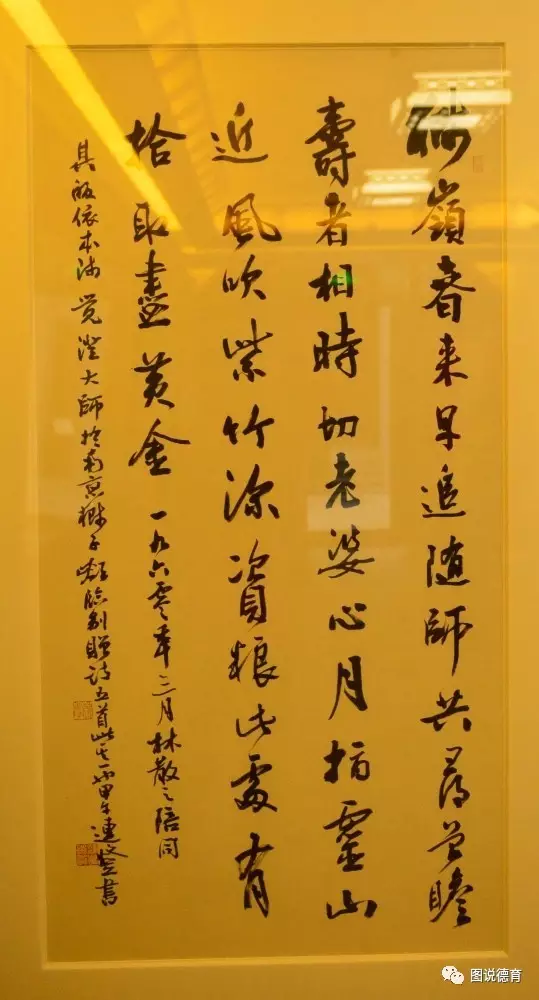 嶺春来早追随師共尋曾瞻
壽者相時切老婆心月指靈山
近風吹紫竹深資粮此處有
拾取盡黄金 一九六零年三月林散之陪同
其皈依本師觉澄大師於南京獅子嶺臨别贈詩五首此其一 甲午連登書
图说德育